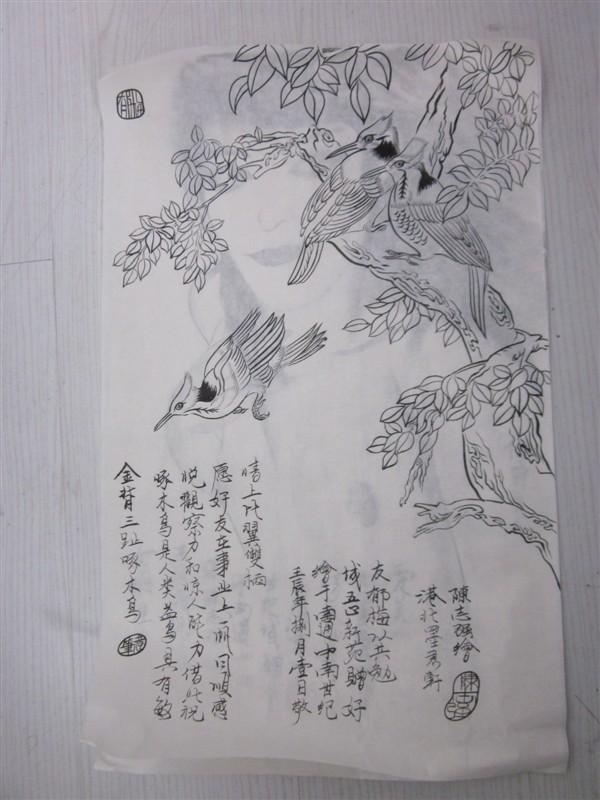 金背三趾啄木鳥
啄木鳥是人类益鳥具有敏
悦觀察力和惊人听力借此祝
愿好友在事业上一帆風順感
情上比翼雙栖
壬辰年捌月壹日敬
繪于南通中南世紀
城五心新苑贈好
友郁梅以共勉
港北墨秀軒
陳志强繪